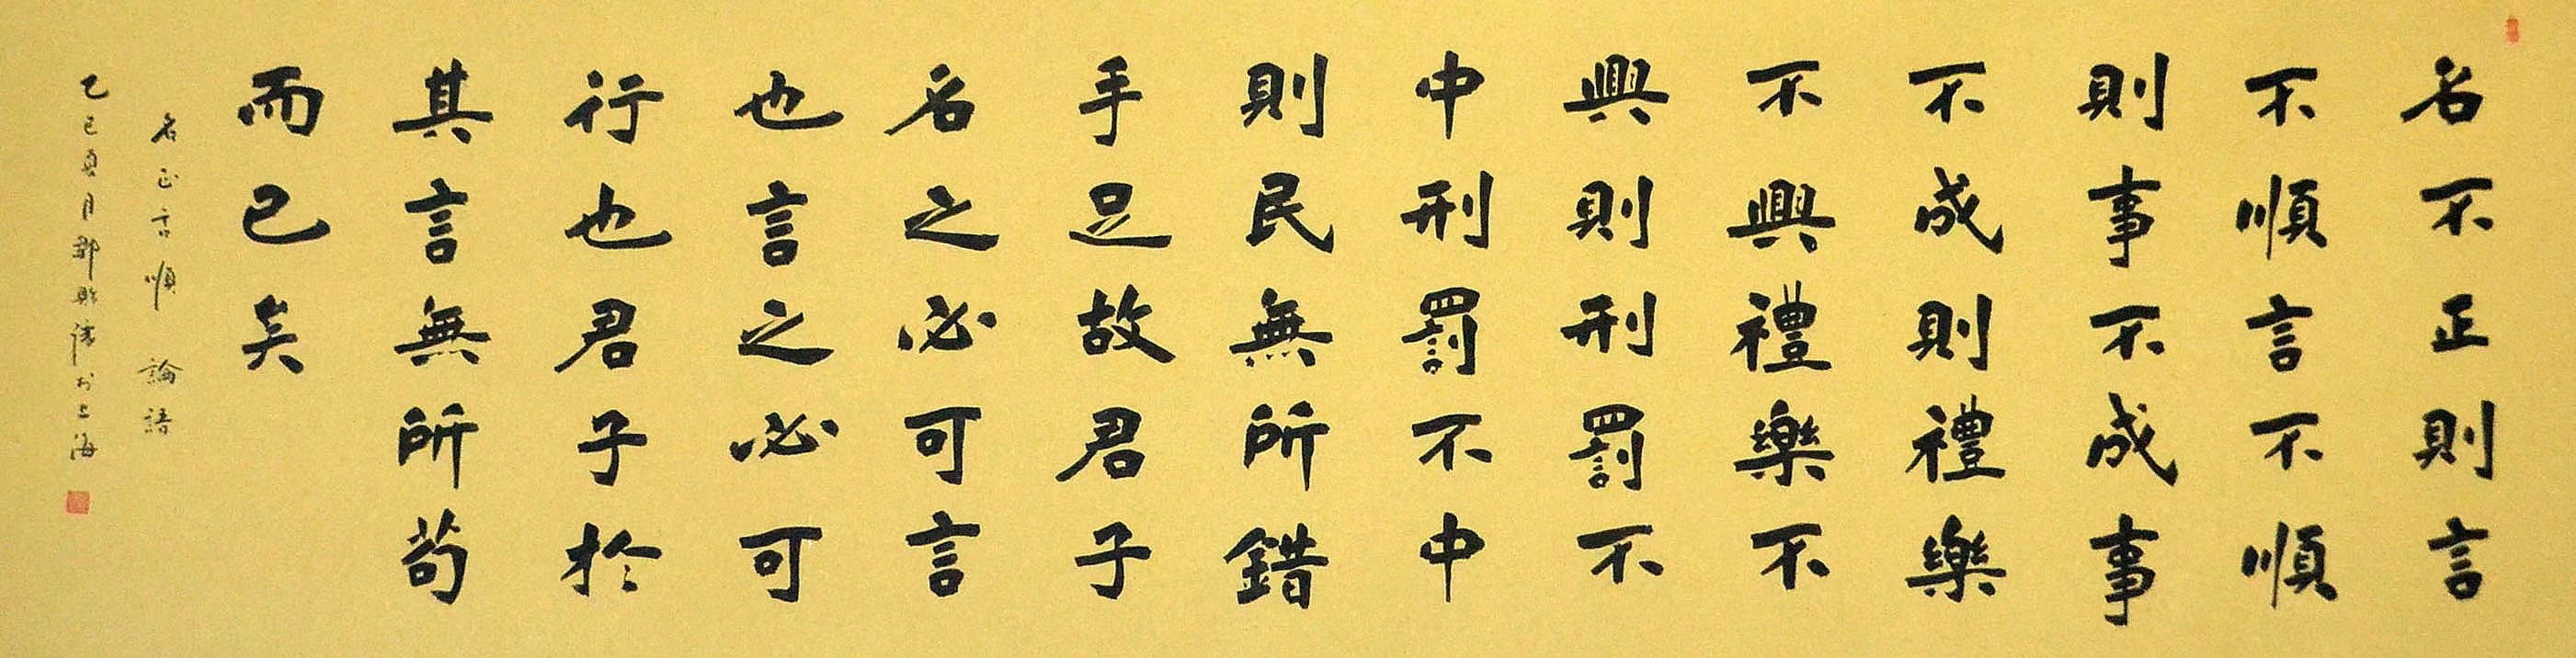 名不正則言
不順言不順
則事不成事
不成則禮樂
不興禮樂不
興則刑罰不
中刑罰不中
則民無所錯
手足故君子
名之必可言
也言之必可
行也君子於
其言無所苟
而已矣
名正言順 論語
乙巳夏月郭 於上海